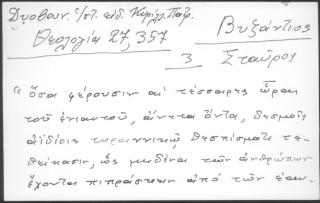 Δυοβουν. ἐ/στ. εἰδ. Κυρίλλ. Πατρ.
Θεολογία 27, 357
Βυζάντιος
3 Σταῦρος
"ὅσα φέρουσιν αἱ τέσσαρες ὧραι
τοῦ ἐνιαυτοῦ, ἄνετα ὄντα, δεσμοῖς
ἀϊδίοις τυραννικῷ θεσπίσματι τε-
θείκασιν, ὡς μηδένα τῶν ἀνθρώπων
ἔχοντα πιπράσκειν ἀπὸ τῶν ἑαυ-